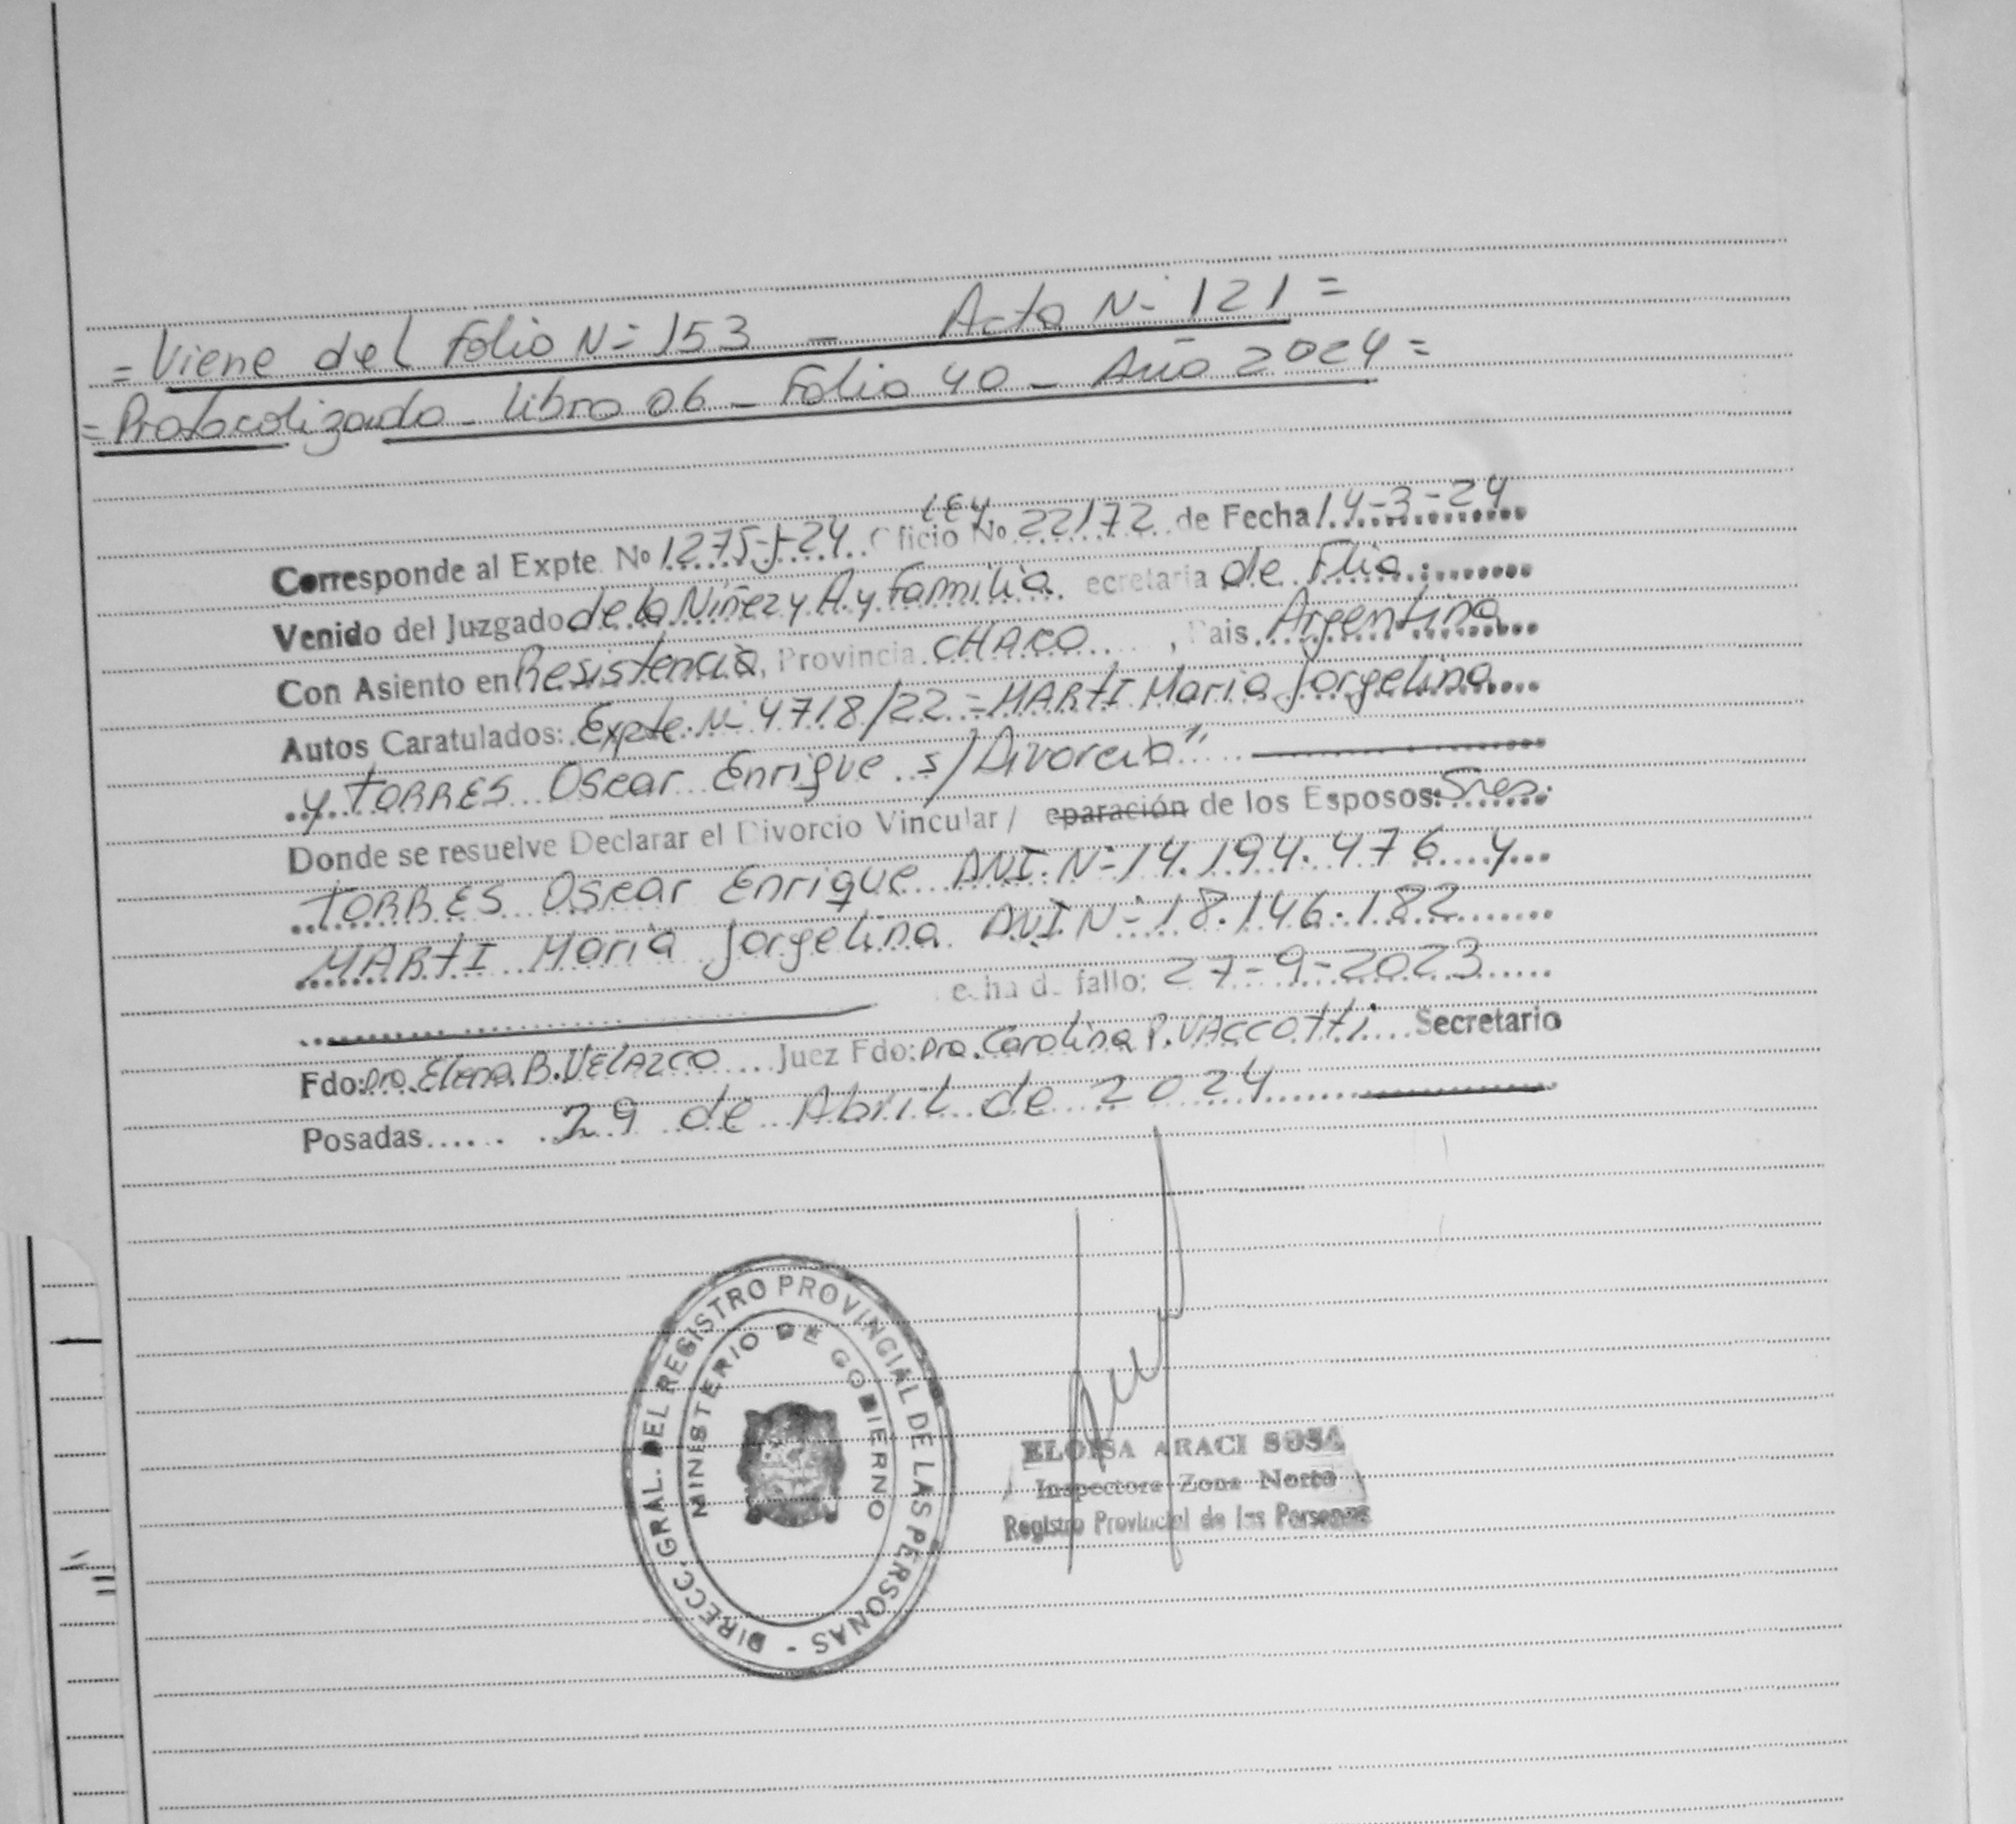 = Viene del Folio N= 153 - Acta N- 121 =
= Protocolizado - Libro 06 - Folio 40 - Año 2024 =
Corresponde al Expte. No 1275-J-24 Oficio LEY No 22172 de Fecha 14-3-24
Venido del Juzgado de la Niñez y A. y Familia ecretaria de Flia.
Con Asiento en Resistencia, Provincia CHACO, Pais Argentina
Autos Caratulados: Expte. N- 4718/22 = MARTI Maria Jorgelina
y TORRES Oscar Enrique s/Divorcio"
Donde se resuelve Declarar el Divorcio Vincular / eparación de los Esposos: Sres.
TORRES Oscar Enrique DNI. N= 14.194.476 y
MARTI Maria Jorgelina DNI N= 18.146.182
echa d fallo: 27-9-2023
Fdo: Dra. Elena B. VELAZCO Juez Fdo: Dra. Carolina P. VACCOTTI Secretario
Posadas 29 de Abril de 2024
DIRECC. GRAL. DEL REGISTRO PROVINCIAL DE LAS PERSONAS -
MINISTERIO DE GOBIERNO
ELOISA ARACI SOSA
Inspectora Zona Norte
Registro Provincial de las Personas